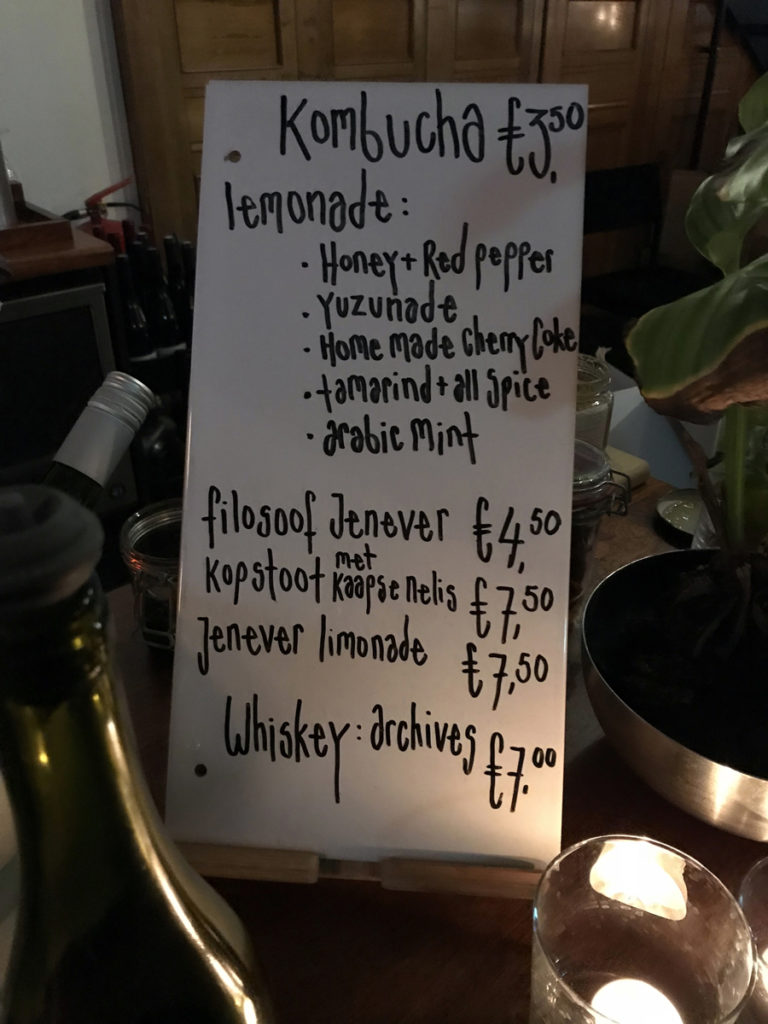 Kombucha €3,50
lemonade:
· Honey + Red pepper
· Yuzunade
· Home made Cherry Coke
· tamarind + all spice
· arabic mint
filosoof Jenever €4,50
kopstoot met kaapse nelis €7,50
Jenever limonade €7,50
Whiskey: archives €7.00